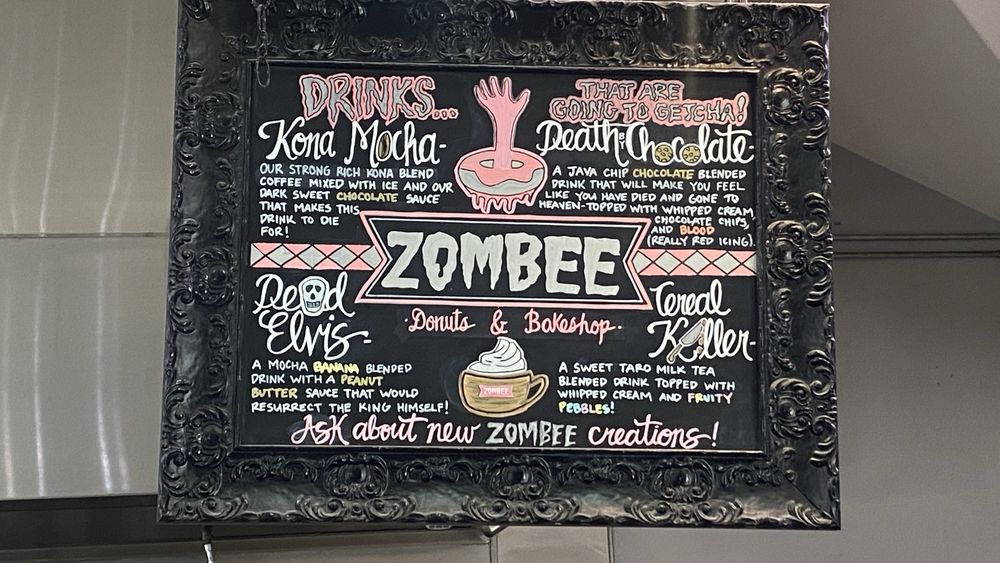 DRINKS...
THAT ARE
GOING TO GETCHA!
Kona Mocha-
OUR STRONG RICH KONA BLEND
COFFEE MIXED WITH ICE AND OUR
DARK SWEET CHOCOLATE SAUCE
THAT MAKES THIS
DRINK TO DIE
FOR!
Death By Chocolate-
A JAVA CHIP CHOCOLATE BLENDED
DRINK THAT WILL MAKE YOU FEEL
LIKE YOU HAVE DIED AND GONE TO
HEAVEN-TOPPED WITH WHIPPED CREAM
CHOCOLATE CHIPS,
AND BLOOD
(REALLY RED ICING).
ZOMBEE
·Donuts & Bakeshop·
Dead
Elvis-
A MOCHA BANANA BLENDED
DRINK WITH A PEANUT
BUTTER SAUCE THAT WOULD
RESURRECT THE KING HIMSELF!
ZOMBEE
Cereal
Killer-
A SWEET TARO MILK TEA
BLENDED DRINK TOPPED WITH
WHIPPED CREAM AND FRUITY
PEBBLES!
ASK about new ZOMBEE creations!